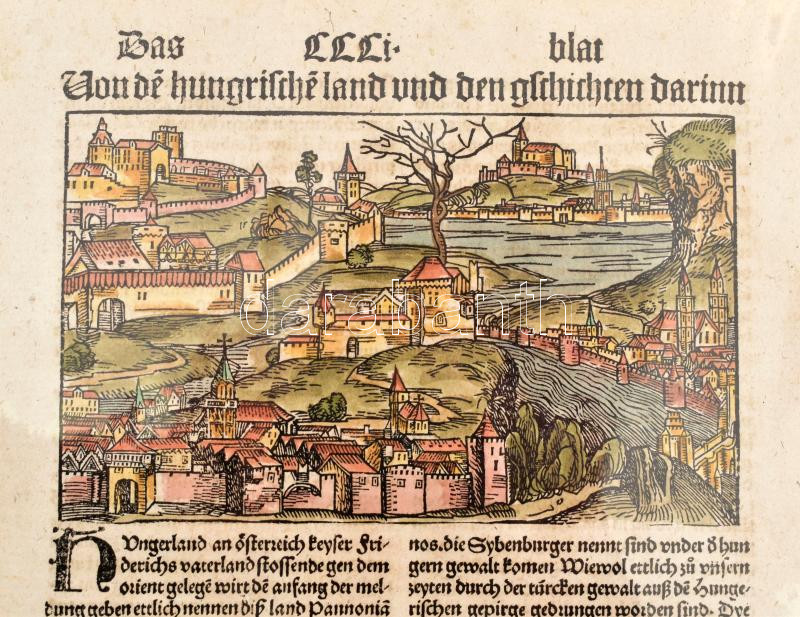 Das CCCi· blat
Von dē hungrischē land vnd den gschichten darinn
darabanth
HVngerland an österreich keyser Fri-
derichs vaterland stossende gen dem
orient gelegē wirt dē anfang der mel-
dung geben ettlich nennen diß land Pannoniā
nos. die Sybenbürger nennt sind vnder d hun
gern gewalt komen Wiewol ettlich zů vnsern
zeyten durch der türcken gewalt auß dē Hunge-
rischen gepirge gedrungen worden sind. Dye